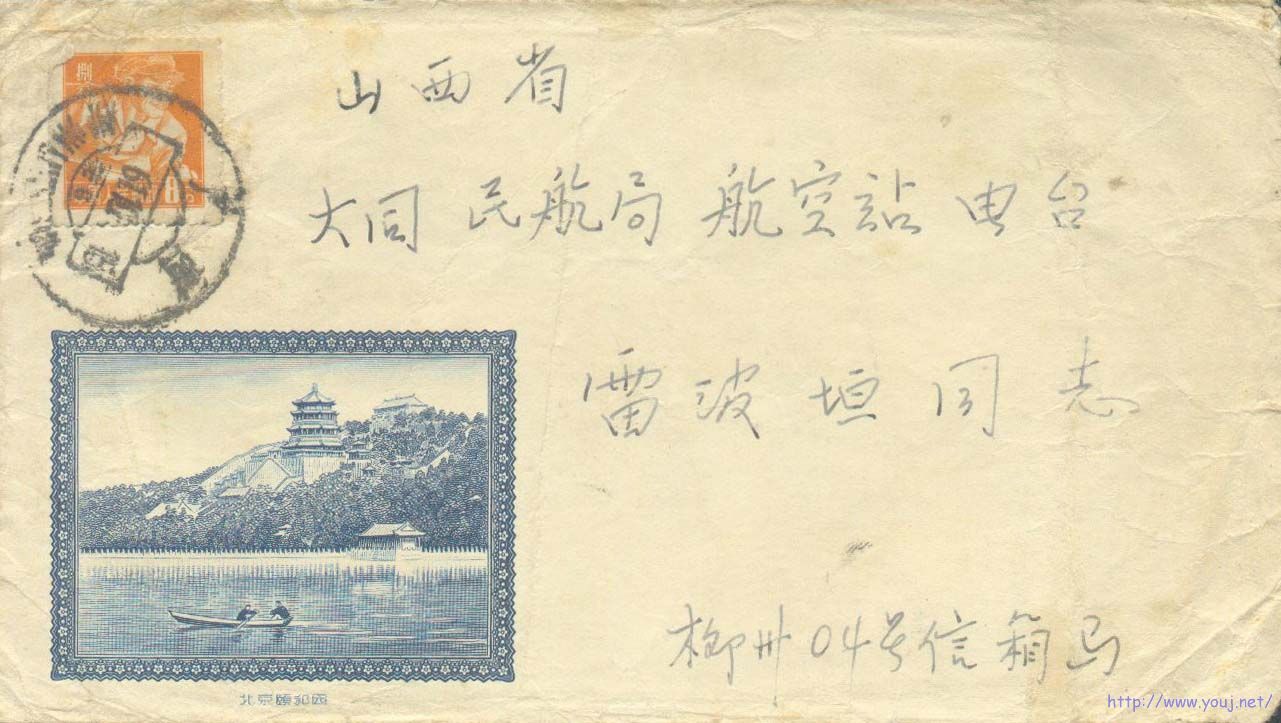 捌
8
山西省
大同 民航局 航空站 电台
雷波垣同志
柳州04号信箱马
北京颐和园
http://www.youj.net/